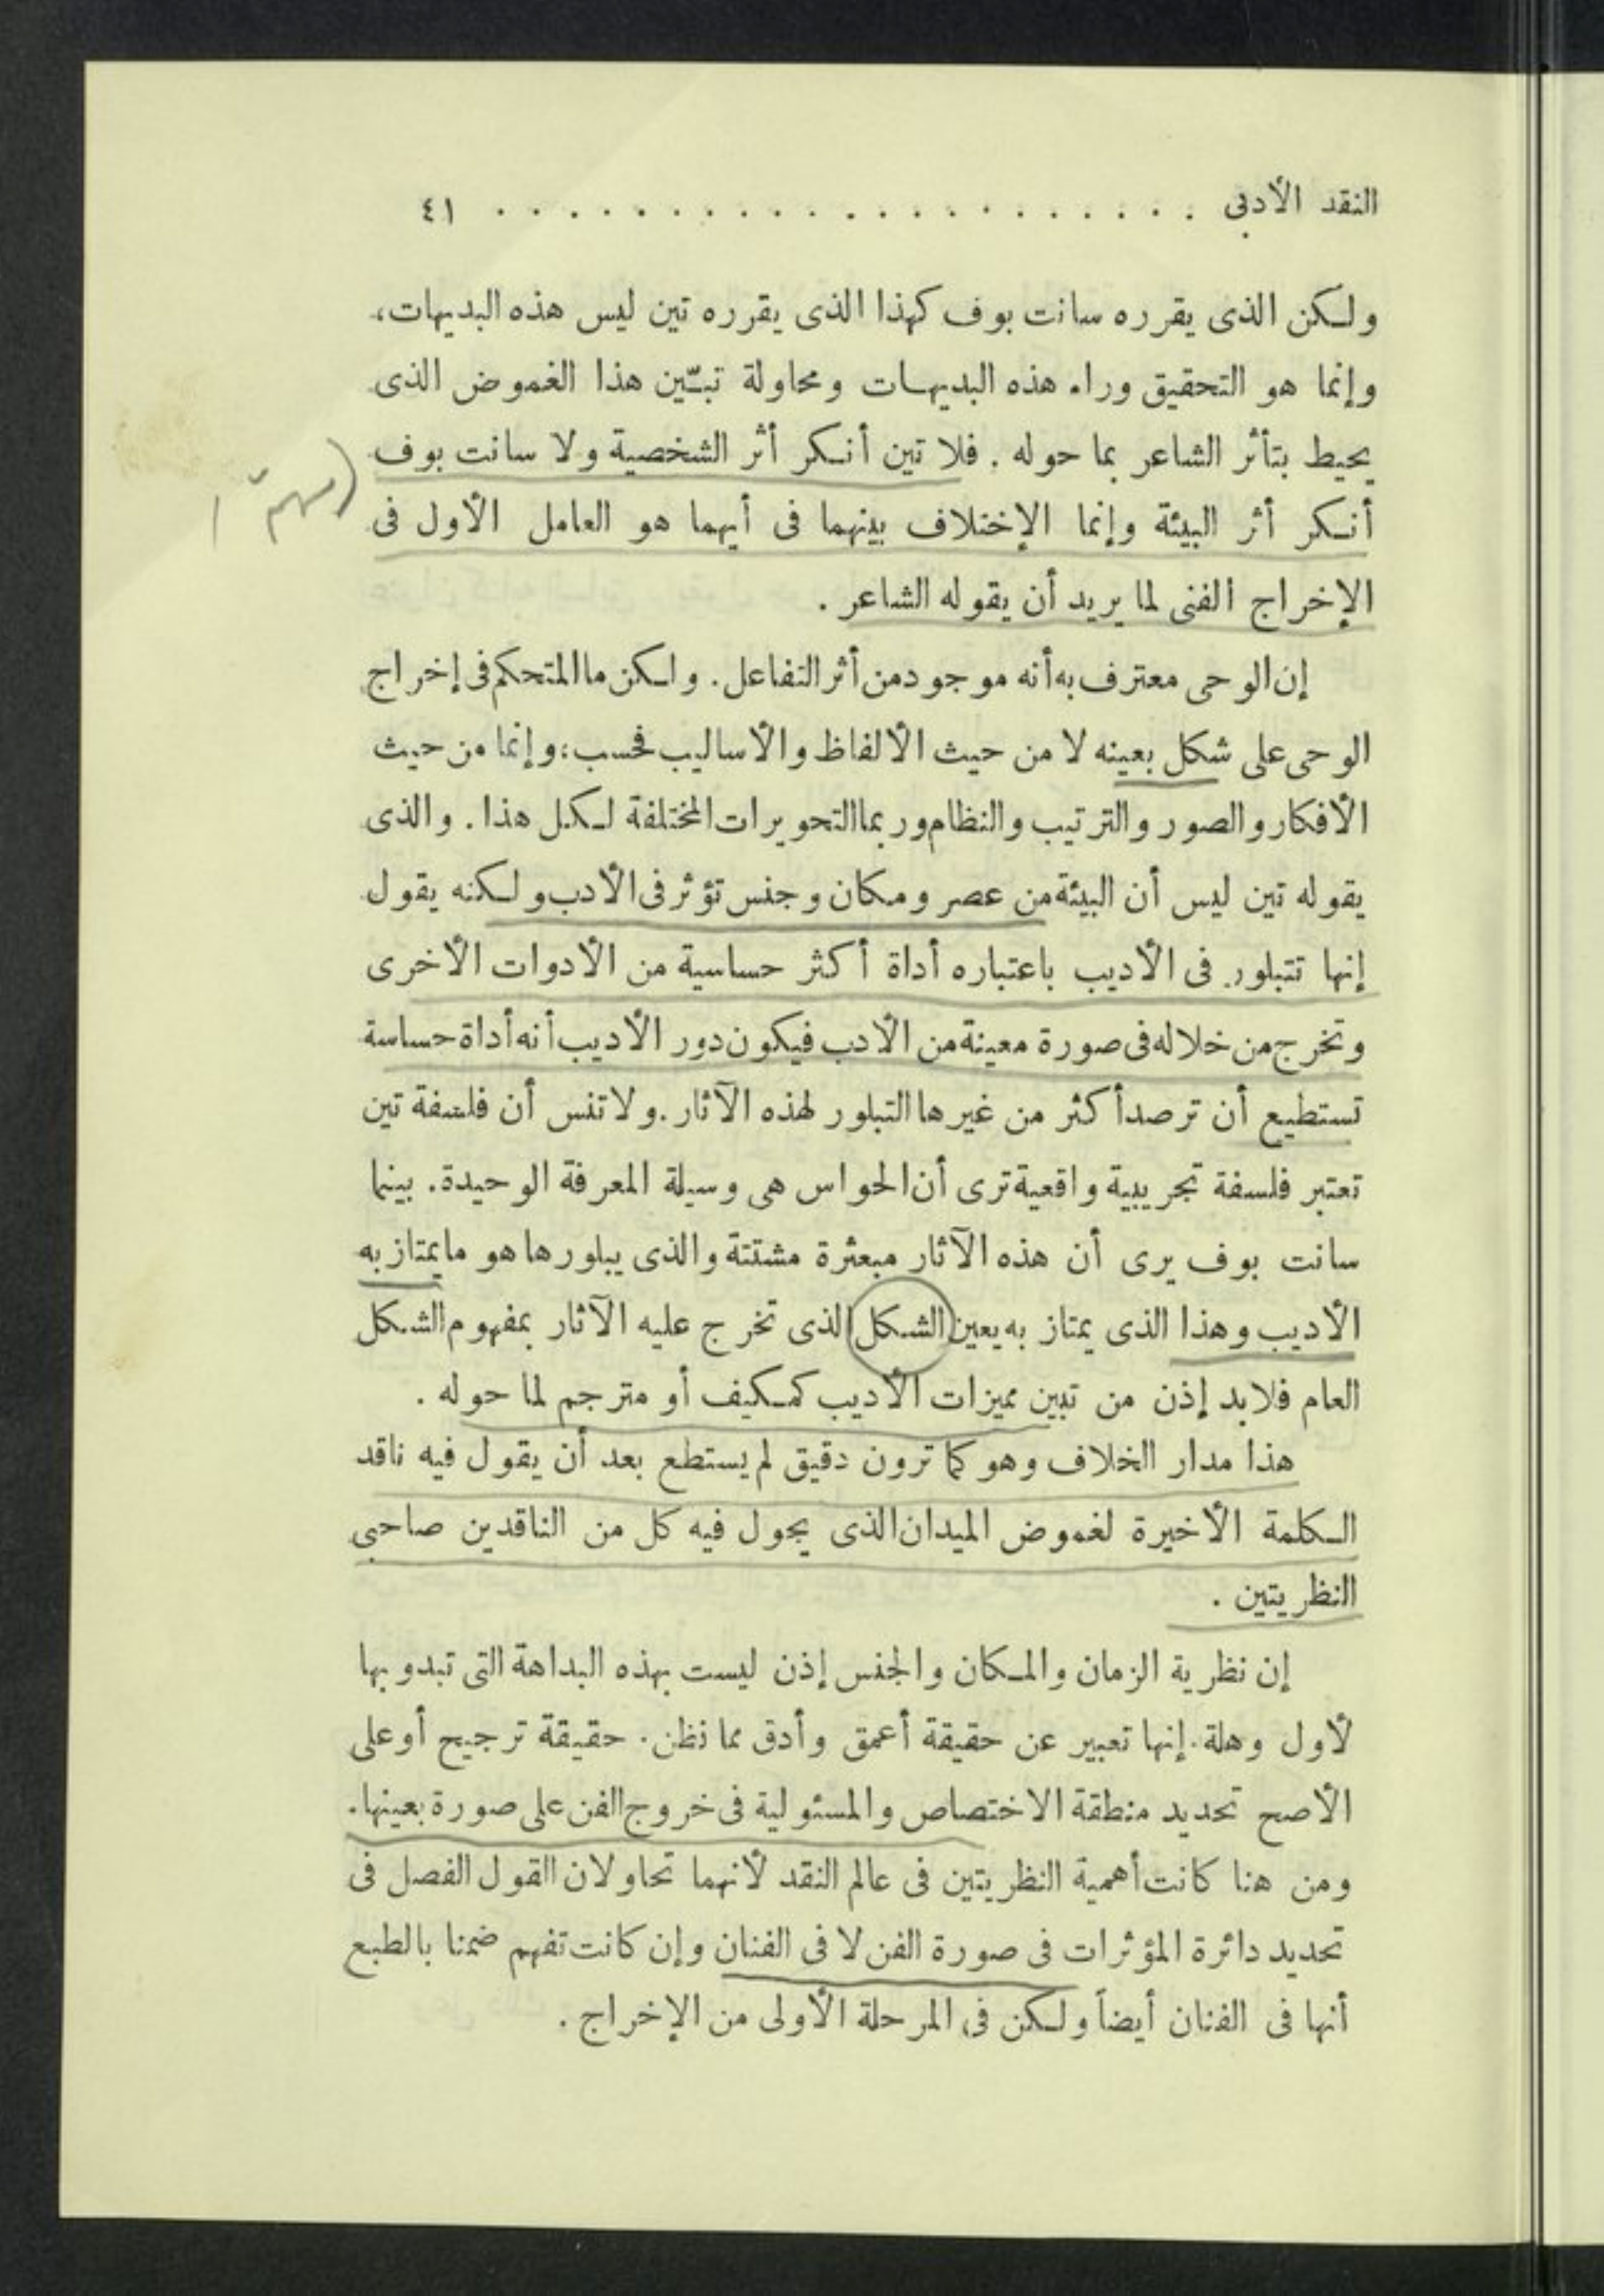 النقد الأدبى . . . . . . . . . . . . . . . . . . . . . ٤١
ولكن الذى يقرره سانت بوف كهذا الذى يقرره تين ليس هذه البديهات،
وإنما هو التحقيق وراء هذه البديهات ومحاولة تبيّن هذا الغموض الذى
يحيط بتأثر الشاعر بما حوله . فلا تين أنكر أثر الشخصية ولا سانت بوف
أنكر أثر البيئة وإنما الإختلاف بينهما فى أيهما هو العامل الأول فى
الإخراج الفنى لما يريد أن يقوله الشاعر .
إن الوحى معترف به أنه موجود من أثر التفاعل . ولكن ما المتحكم فى إخراج
الوحى على شكل بعينه لا من حيث الألفاظ والأساليب فحسب؛ وإنما من حيث
الأفكار والصور والترتيب والنظام وربما التحويرات المختلفة لكل هذا . والذى
يقوله تين ليس أن البيئة من عصر ومكان وجنس تؤثر فى الأدب ولكنه يقول
إنها تتبلور فى الأديب باعتباره أداة أكثر حساسية من الأدوات الأخرى
وتخرج من خلاله فى صورة معينة من الأدب فيكون دور الأديب أنه أداة حساسة
تستطيع أن ترصد أكثر من غيرها التبلور لهذه الآثار . ولا تنس أن فلسفة تين
تعتبر فلسفة تجريبية واقعية ترى أن الحواس هى وسيلة المعرفة الوحيدة . بينما
سانت بوف يرى أن هذه الآثار مبعثرة مشتتة والذى يبلورها هو ما يمتاز به
الأديب وهذا الذى يمتاز به يعين الشكل الذى تخرج عليه الآثار بمفهوم الشكل
العام فلابد إذن من تبين مميزات الأديب كمكيف أو مترجم لما حوله .
هذا مدار الخلاف وهو كما ترون دقيق لم يستطع بعد أن يقول فيه ناقد
الكلمة الأخيرة لغموض الميدان الذى يجول فيه كل من الناقدين صاحبى
النظريتين .
إن نظرية الزمان والمكان والجنس إذن ليست بهذه البداهة التى تبدو بها
لأول وهلة . إنها تعبير عن حقيقة أعمق وأدق مما نظن . حقيقة ترجيح أو على
الأصح تحديد منطقة الاختصاص والمسئولية فى خروج الفن على صورة بعينها .
ومن هنا كانت أهمية النظريتين فى عالم النقد لأنهما تحاولان القول الفصل فى
تحديد دائرة المؤثرات فى صورة الفن لا فى الفنان وإن كانت تفهم ضمنا بالطبع
أنها فى الفنان أيضاً ولكن فى المرحلة الأولى من الإخراج .